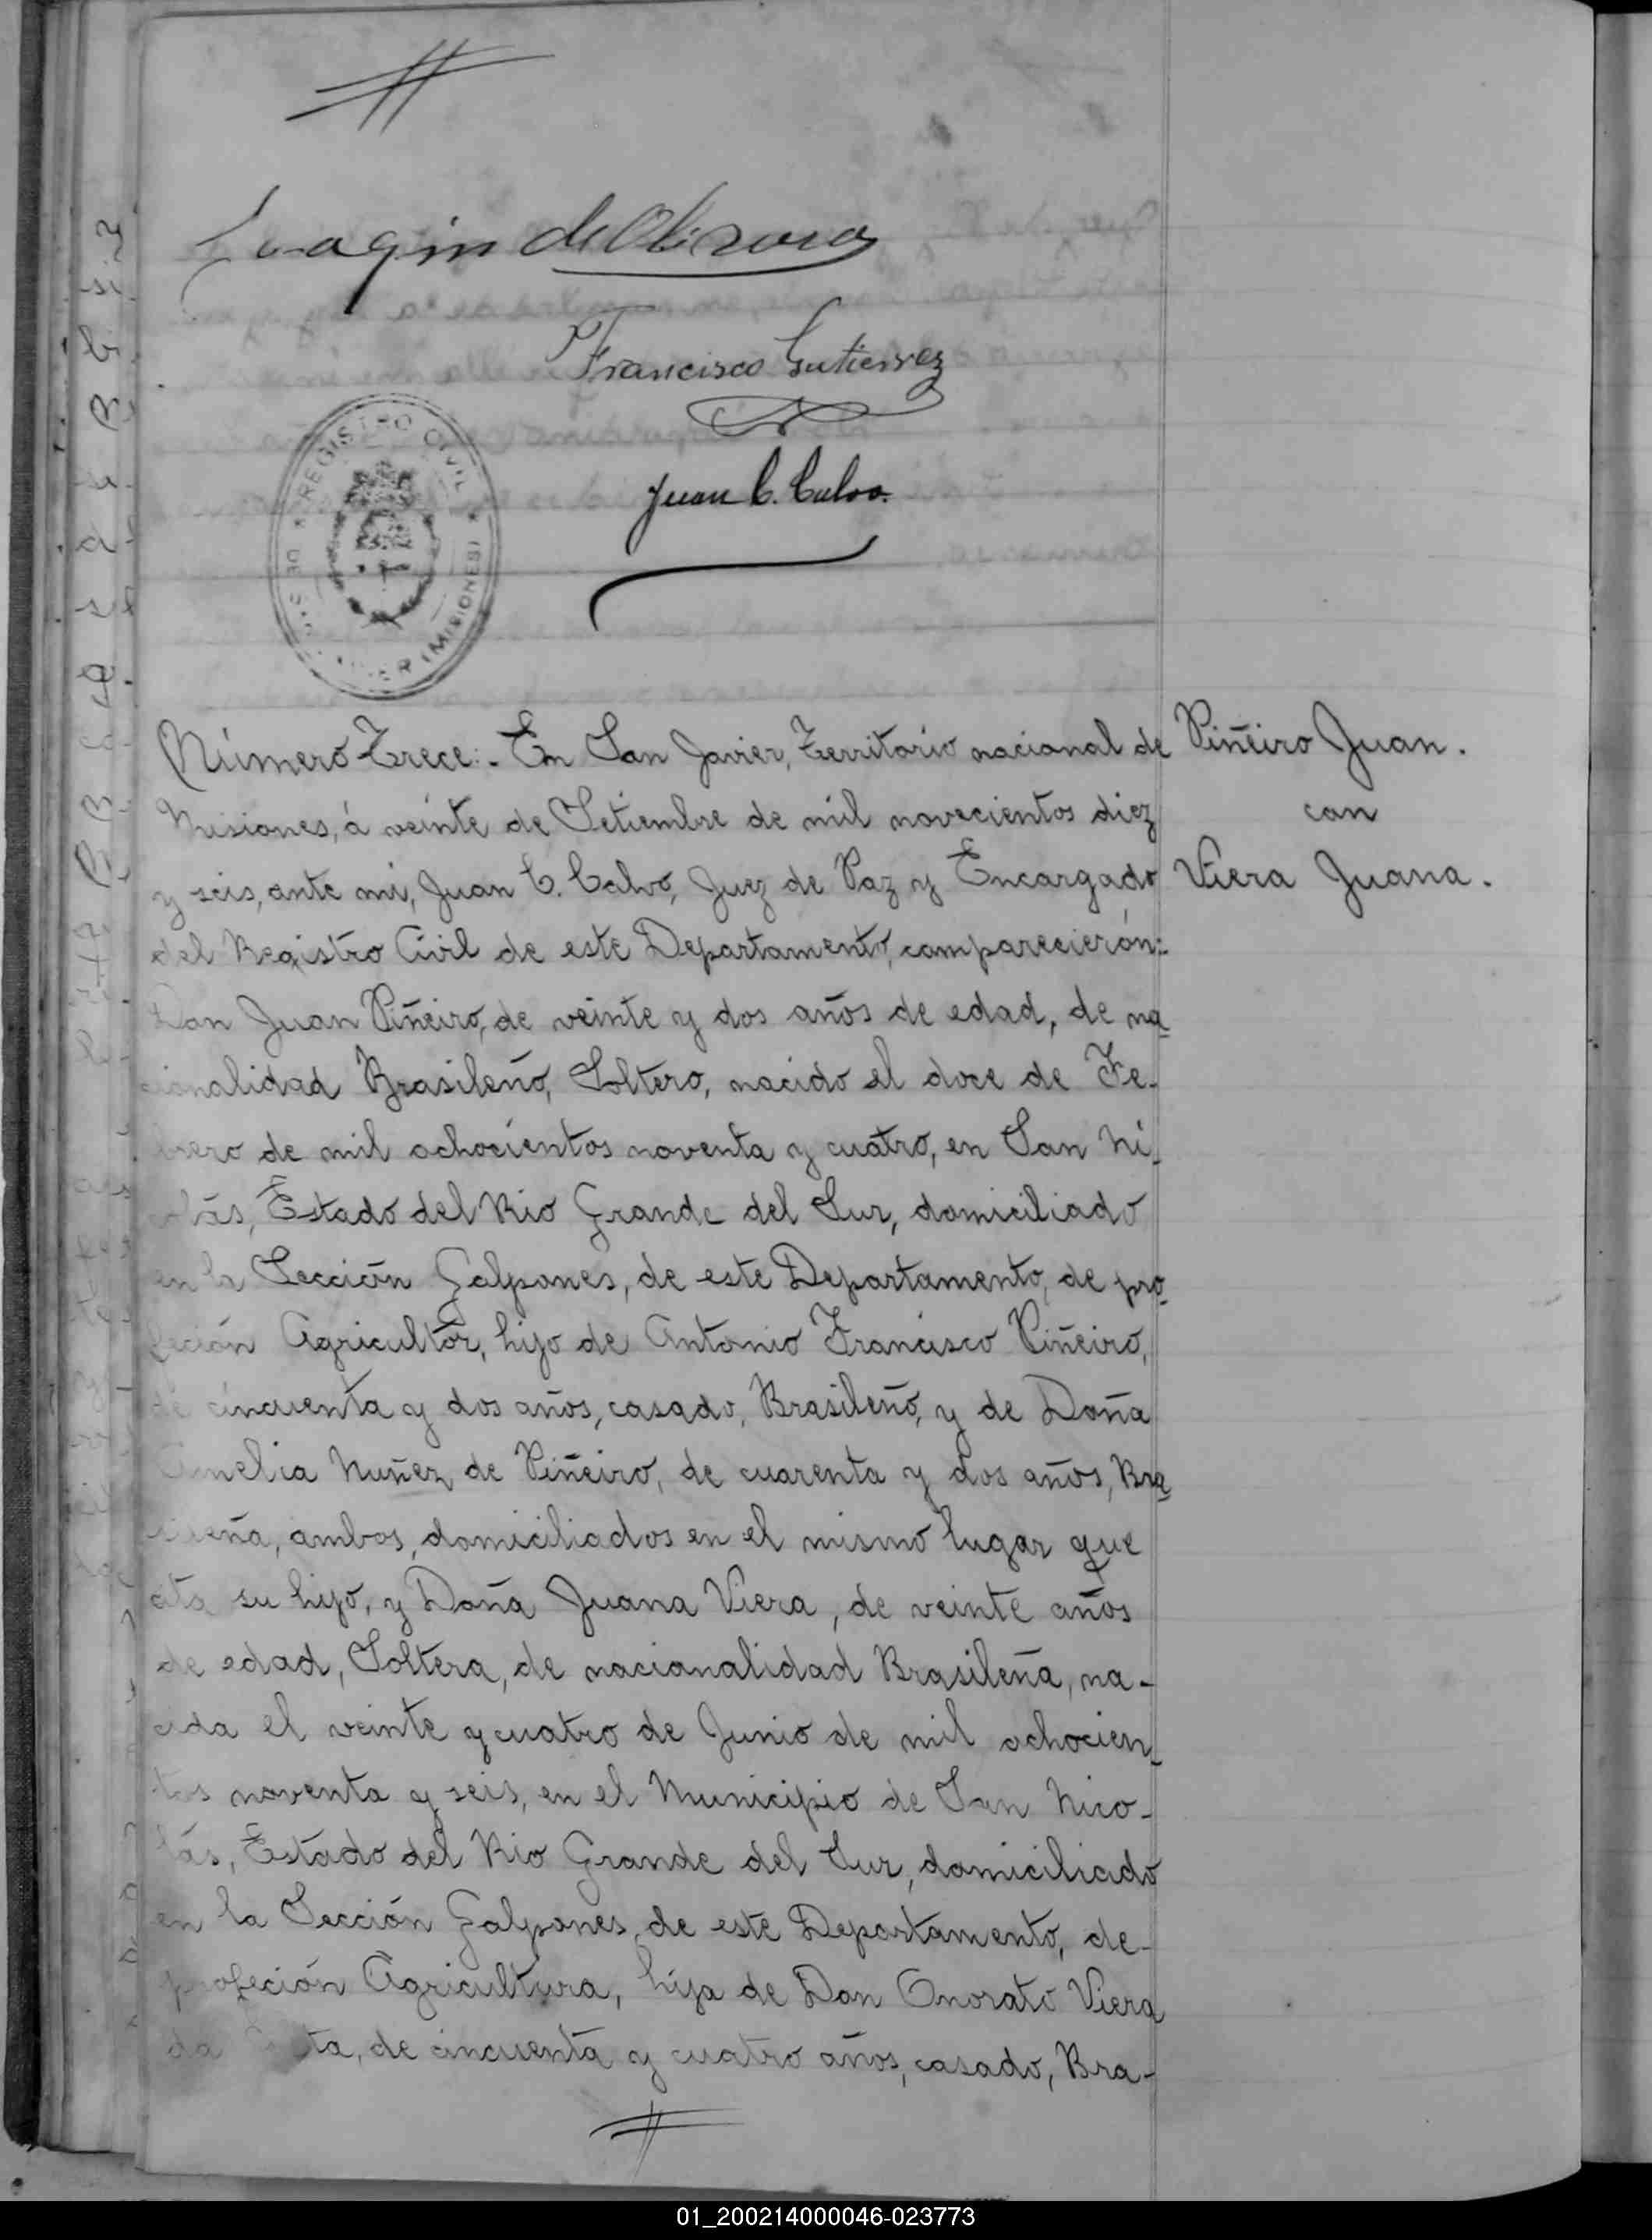 Joaquin de Oliveira
Francisco Gutierrez
Juan C. Calvo.
REGISTRO CIVIL
DE SAN JAVIER (MISIONES)
Número Trece:- En San Javier, Territorio nacional de
Misiones, á veinte de Setiembre de mil novecientos diez
y seis, ante mi, Juan C. Calvo, Juez de Paz y Encargado
del Registro Civil de este Departamento, comparecierón:
Don Juan Piñeiro, de veinte y dos años de edad, de na
cionalidad Brasileño, Soltero, nacido el doce de Fe-
brero de mil ochocientos noventa y cuatro, en San Ni-
colás, Estado del Rio Grande del Sur, domiciliado
en la Sección Galpones, de este Departamento, de pro
feción Agricultor, hijo de Antonio Francisco Piñeiro,
de cincuenta y dos años, casado, Brasileño, y de Doña
Amelia Nuñez de Piñeiro, de cuarenta y dos años, Bra
sileña, ambos, domiciliados en el mismo lugar que
su hijo, y Doña Juana Viera, de veinte años
de edad, Soltera, de nacionalidad Brasileña, na-
cida el veinte y cuatro de Junio de mil ochocien-
tos noventa y seis, en el Municipio de San Nico-
lás, Estado del Rio Grande del Sur, domiciliado
en la Sección Galpones, de este Departamento, de-
profeción Agricultura, hija de Don Onorato Viera
da de cincuenta y cuatro años, casado, Bra-
Piñeiro Juan.
con
Viera Juana.
01_200214000046-023773